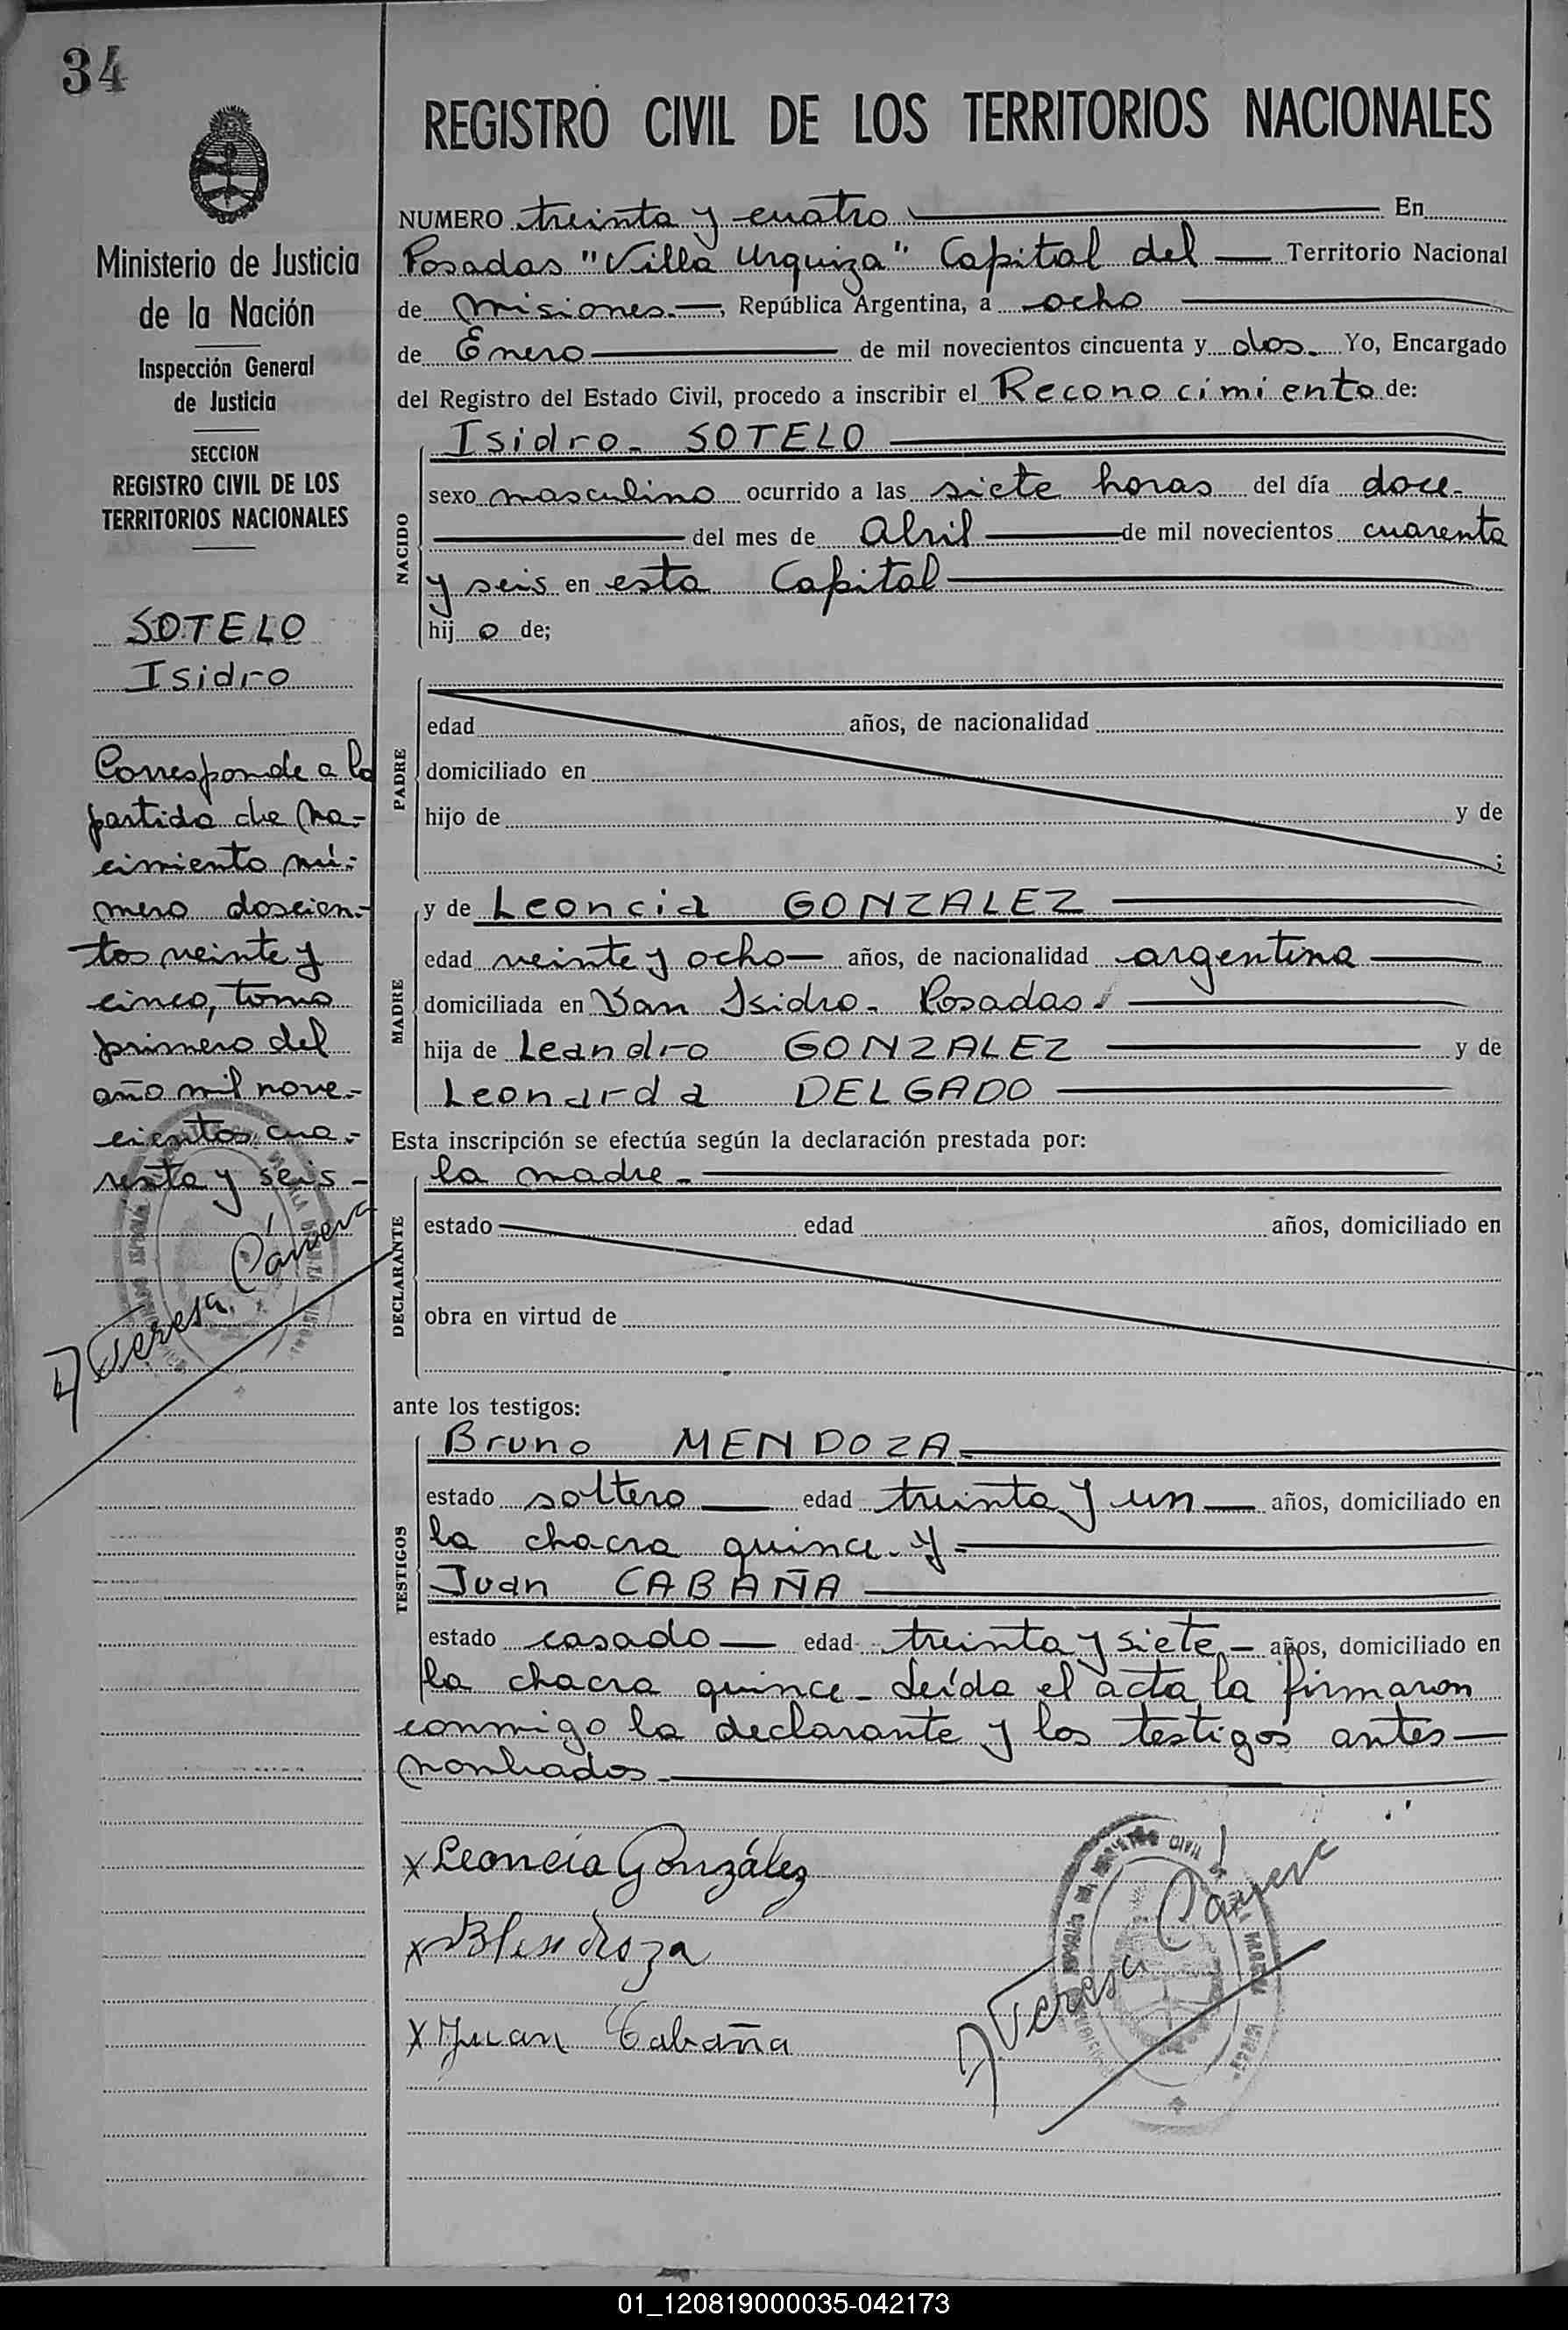 34
Ministerio de Justicia
de la Nación
Inspección General
de Justicia
SECCION
REGISTRO CIVIL DE LOS
TERRITORIOS NACIONALES
SOTELO
Isidro
Corresponde a la
partida de na-
cimiento nú-
mero doscien-
tos veinte y
cinco, tomo
primero del
año mil nove-
cientos cua-
renta y seis
Teresa Cánovera
REGISTRO CIVIL DE LOS TERRITORIOS NACIONALES
NUMERO treinta y cuatro En
Posadas "Villa Urquiza" Capital del Territorio Nacional
de Misiones.-, República Argentina, a ocho
de Enero de mil novecientos cincuenta y dos. Yo, Encargado
del Registro del Estado Civil, procedo a inscribir el Reconocimiento de:
NACIDO
Isidro- SOTELO
sexo masculino ocurrido a las siete horas del día doce-
del mes de Abril de mil novecientos cuarenta
y seis en esta Capital
hijo de;
PADRE
edad años, de nacionalidad
domiciliado en
hijo de y de
;
MADRE
y de Leoncia GONZALEZ
edad veinte y ocho años, de nacionalidad argentina
domiciliada en San Isidro- Posadas
hija de Leandro GONZALEZ y de
Leonarda DELGADO
Esta inscripción se efectúa según la declaración prestada por:
DECLARANTE
la madre-
estado edad años, domiciliado en
obra en virtud de
ante los testigos:
TESTIGOS
Bruno MENDOZA
estado soltero edad treinta y un años, domiciliado en
la chacra quince-y-
Juan CABAÑA
estado casado edad treinta y siete- años, domiciliado en
la chacra quince- Leída el acta la firmaron
conmigo la declarante y los testigos antes
nombrados-
x Leoncia González
x BMendoza
x Juan Cabaña
Teresa
01_120819000035-042173